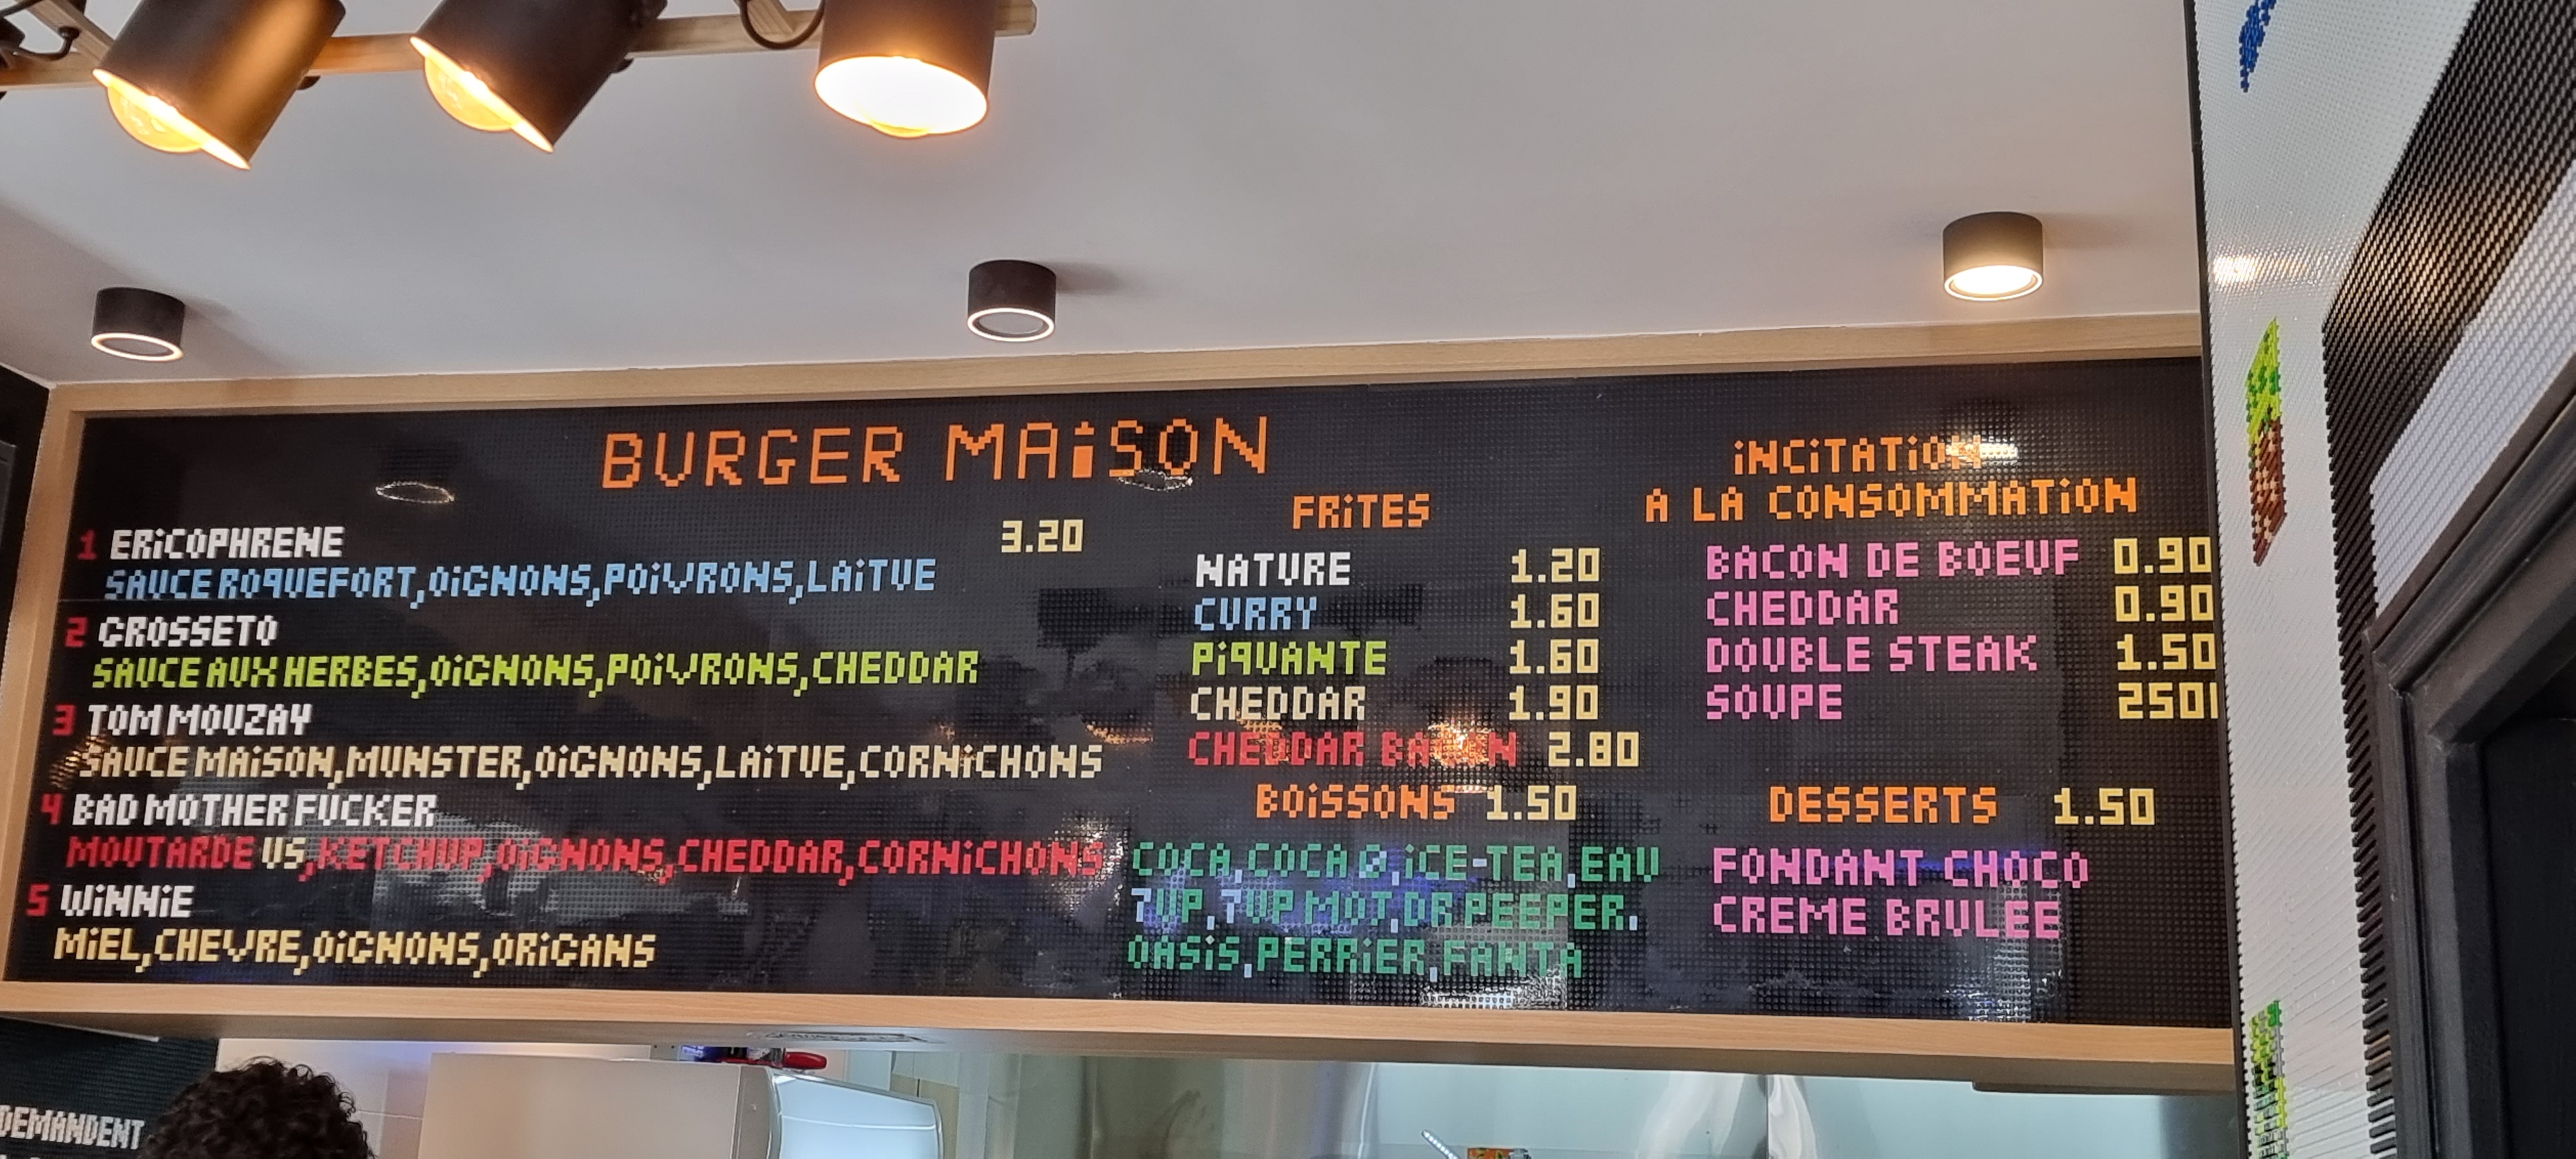 BURGER MAiSON
1 ERiCOPHRENE 3.20
SAUCE ROQUEFORT,OiGNONS,POiVRONS,LAiTUE
2 GROSSETO
SAUCE AUX HERBES,OiGNONS,POiVRONS,CHEDDAR
3 TOM MOUZAY
SAUCE MAiSON,MUNSTER,OiGNONS,LAiTUE,CORNiCHONS
4 BAD MOTHER FUCKER
MOUTARDE VS,KETCHUP,OiGNONS,CHEDDAR,CORNiCHONS
5 WiNNiE
MiEL,CHEVRE,OiGNONS,ORiGANS
FRiTES
NATURE 1.20
CURRY 1.60
PiQUANTE 1.60
CHEDDAR 1.90
CHEDDAR BACON 2.80
BOiSSONS 1.50
COCA,COCA 0,iCE-TEA,EAU
7UP,7UP MOJ,DR PEEPER,
OASiS,PERRiER,FANTA
iNCiTATiON
A LA CONSOMMATiON
BACON DE BOEUF 0.90
CHEDDAR 0.90
DOUBLE STEAK 1.50
SOUPE
DESSERTS 1.50
FONDANT CHOCO
CREME BRULEE
DEMANDENT